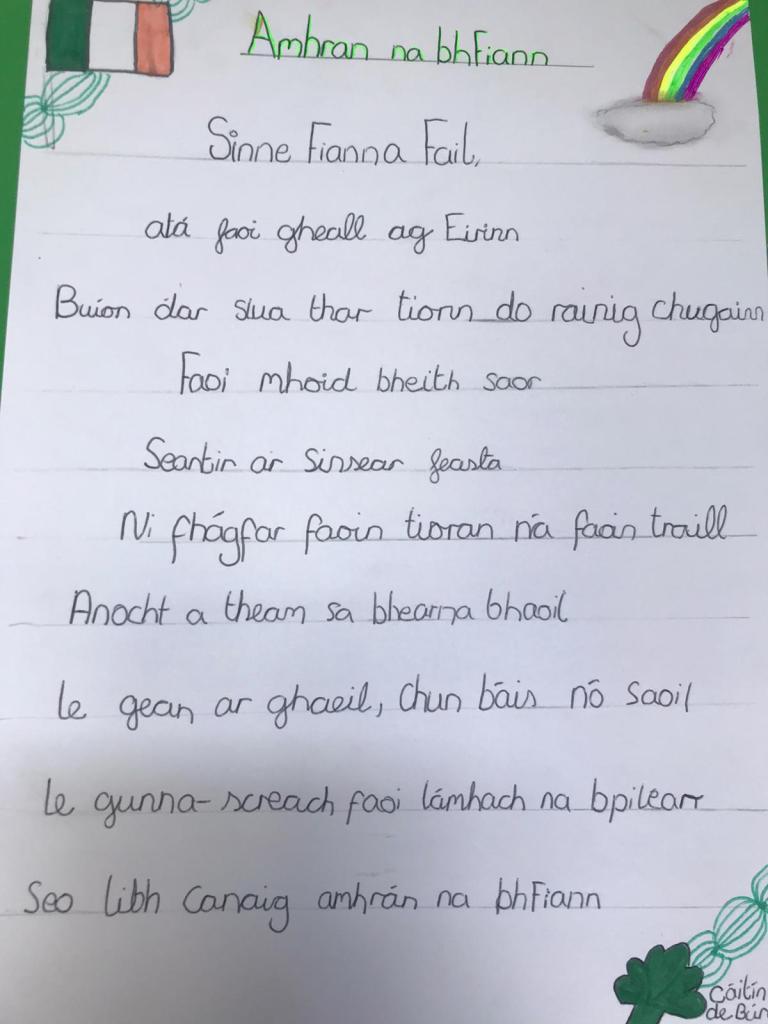 Amhran na bhFiann
Sinne Fianna Fail,
atá faoi gheall ag Eirinn
Buíon dar slua thar tionn do rainig chugainn
Faoi mhoid bheith saor
Seantir ar sinsear feasta
Ni fhágfar faoin tioran ná faoin traill
Anocht a theam sa bhearna bhaoil
le gean ar ghaeil, chun báis nó saoil
le gunna-screach faoi lámhach na bpilearr
Seo libh canaig amhrán na bhFiann
Cáitín
de Búr